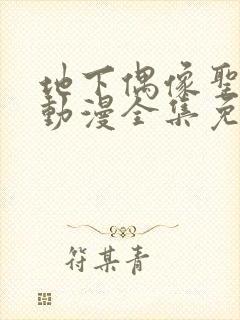 地下偶像聖
動漫全集免
符某青